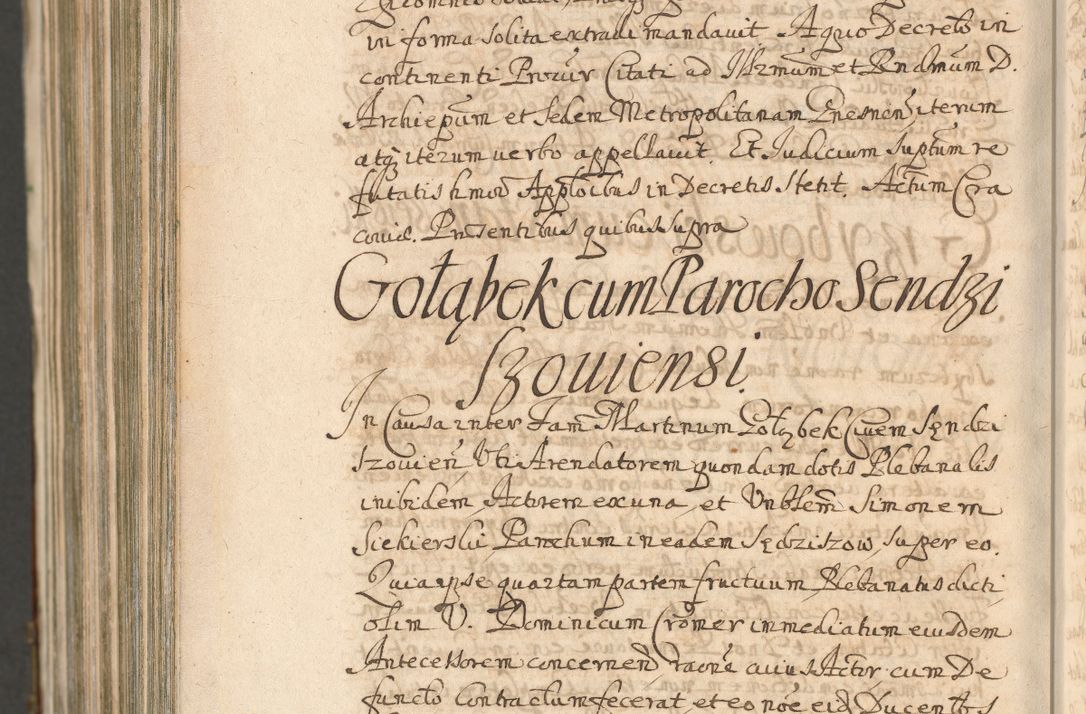 in forma solita extradi mandauit. A quo Decreto in
continenti Procur Citati ad Illrmum et Rndmum D.
Archiepum et Sedem Metropolitanam Gnesnen iterum
atq iterum verbo appellauit. Et Judicium suptum re
futatis hmod Applonibus in Decretis stetit. Actum Cra
couiæ. Præsentibus quibus supra
Gołąbek cum Parocho Sendzi
szouiensi.
In Causa inter Fam Martinum Gołąbek Ciuem Sęndzi
szouien Vti Arendatorem quondam dotis Plebanalis
inibidem Actorem ex una et Vnblem Simonem
Siekierski Parochum in eadem Sędziszow, super eo.
Quia ipse quartam partem fructuum Plebanatus dicti
olim V. Dominicum Cromer immediatum eiusdem
Antecessorem concernen raone cuius Actor cum De
functo Contractum fecerat, et eo noe eid Ducentos